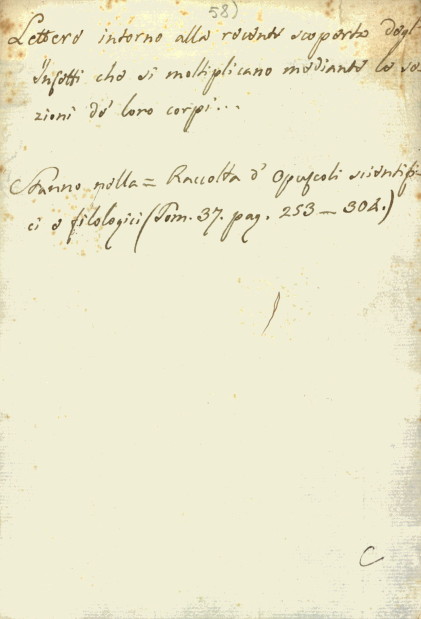 58)
Lettere intorno alla recente scoperta degl'
Insetti che si moltiplicano mediante le se-
zioni de' loro corpi...
Stanno nella = Raccolta d'Opuscoli scientifi-
ci e filologici (Tom. 37. pag. 253 — 304.)
C